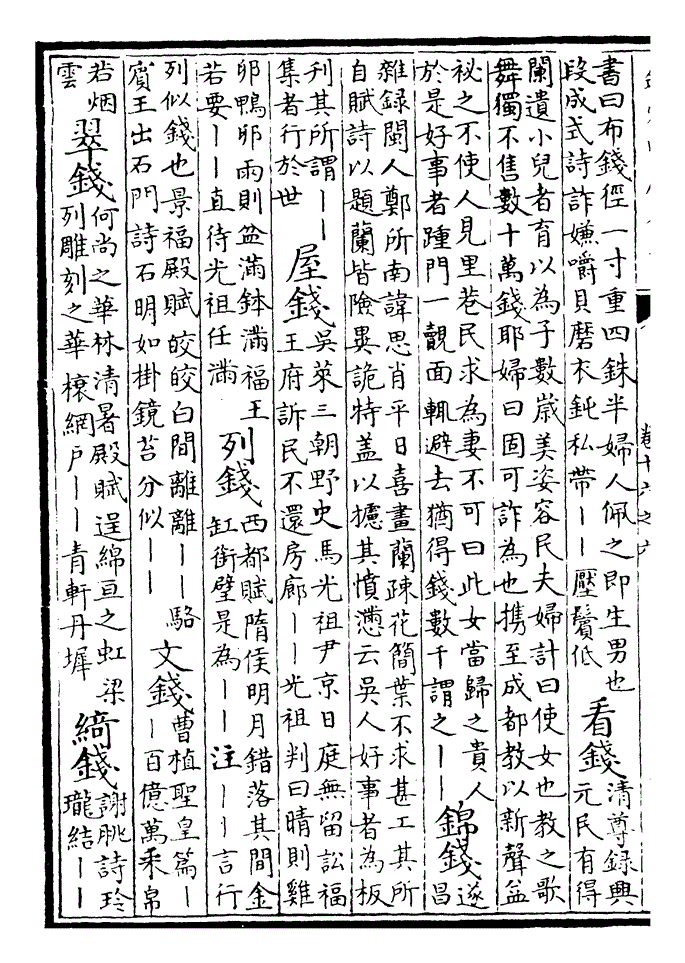 書曰布錢徑一寸重四銖半婦人佩之即生男也
段成式詩詐嫌嚼貝磨衣鈍私帶丨丨壓鬢低
看錢
清尊録興
元民有得
闌遺小兒者育以為子數歲美姿容民夫婦計曰使女也教之歌
舞獨不售數十萬錢耶婦曰固可詐為也携至成都教以新聲益
祕之不使人見里巷民求為妻不可曰此女當歸之貴人
於是好事者踵門一覿面輒避去猶得錢數千謂之丨丨
錦錢
遂
昌
雜録閩人鄭所南諱思肖平日喜畫蘭疎花簡葉不求甚工其所
自賦詩以題蘭皆險異詭特盖以攄其憤懣云吳人好事者為板
刋其所謂丨丨
集者行於世
屋錢
吳萊三朝野史馬光祖尹京日庭無留訟福
王府訴民不還房廊丨丨光祖判曰晴則雞
卵鴨卵雨則盆滿鉢滿福王
若要丨丨直待光祖任滿
列錢
西都賦隋侯明月錯落其間金
釭銜璧是為丨丨注丨丨言行
列似錢也景福殿賦皎皎白間離離丨丨駱
賓王出石門詩石明如掛鏡苔分似丨丨
文錢
曹植聖皇篇丨
丨百億萬采帛
若烟
雲
翠錢
何尚之華林清暑殿賦逞綿亘之虹梁
列雕刻之華榱網戶丨丨青軒丹墀
綺錢
謝朓詩玲
瓏結丨丨